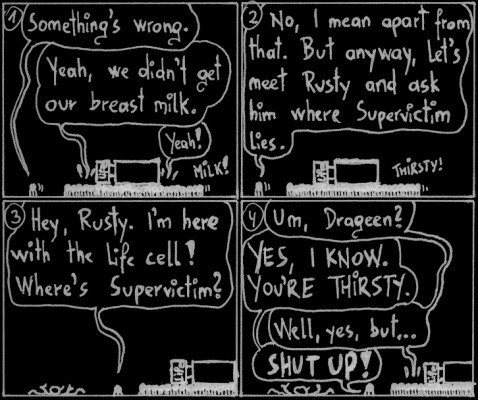 1
Something's wrong.
Yeah, we didn't get
our breast milk.
Yeah!
MILK!
LIFE
2
No, I mean apart from
that. But anyway, Let's
meet Rusty and ask
him where Supervictim
lies.
THIRSTY!
LIFE
3
Hey, Rusty. I'm here
with the Life cell!
Where's Supervictim?
LIFE
4
Um, Drageen?
YES, I KNOW.
YOU'RE THIRSTY.
Well, yes, but...
SHUT UP!
LIFE